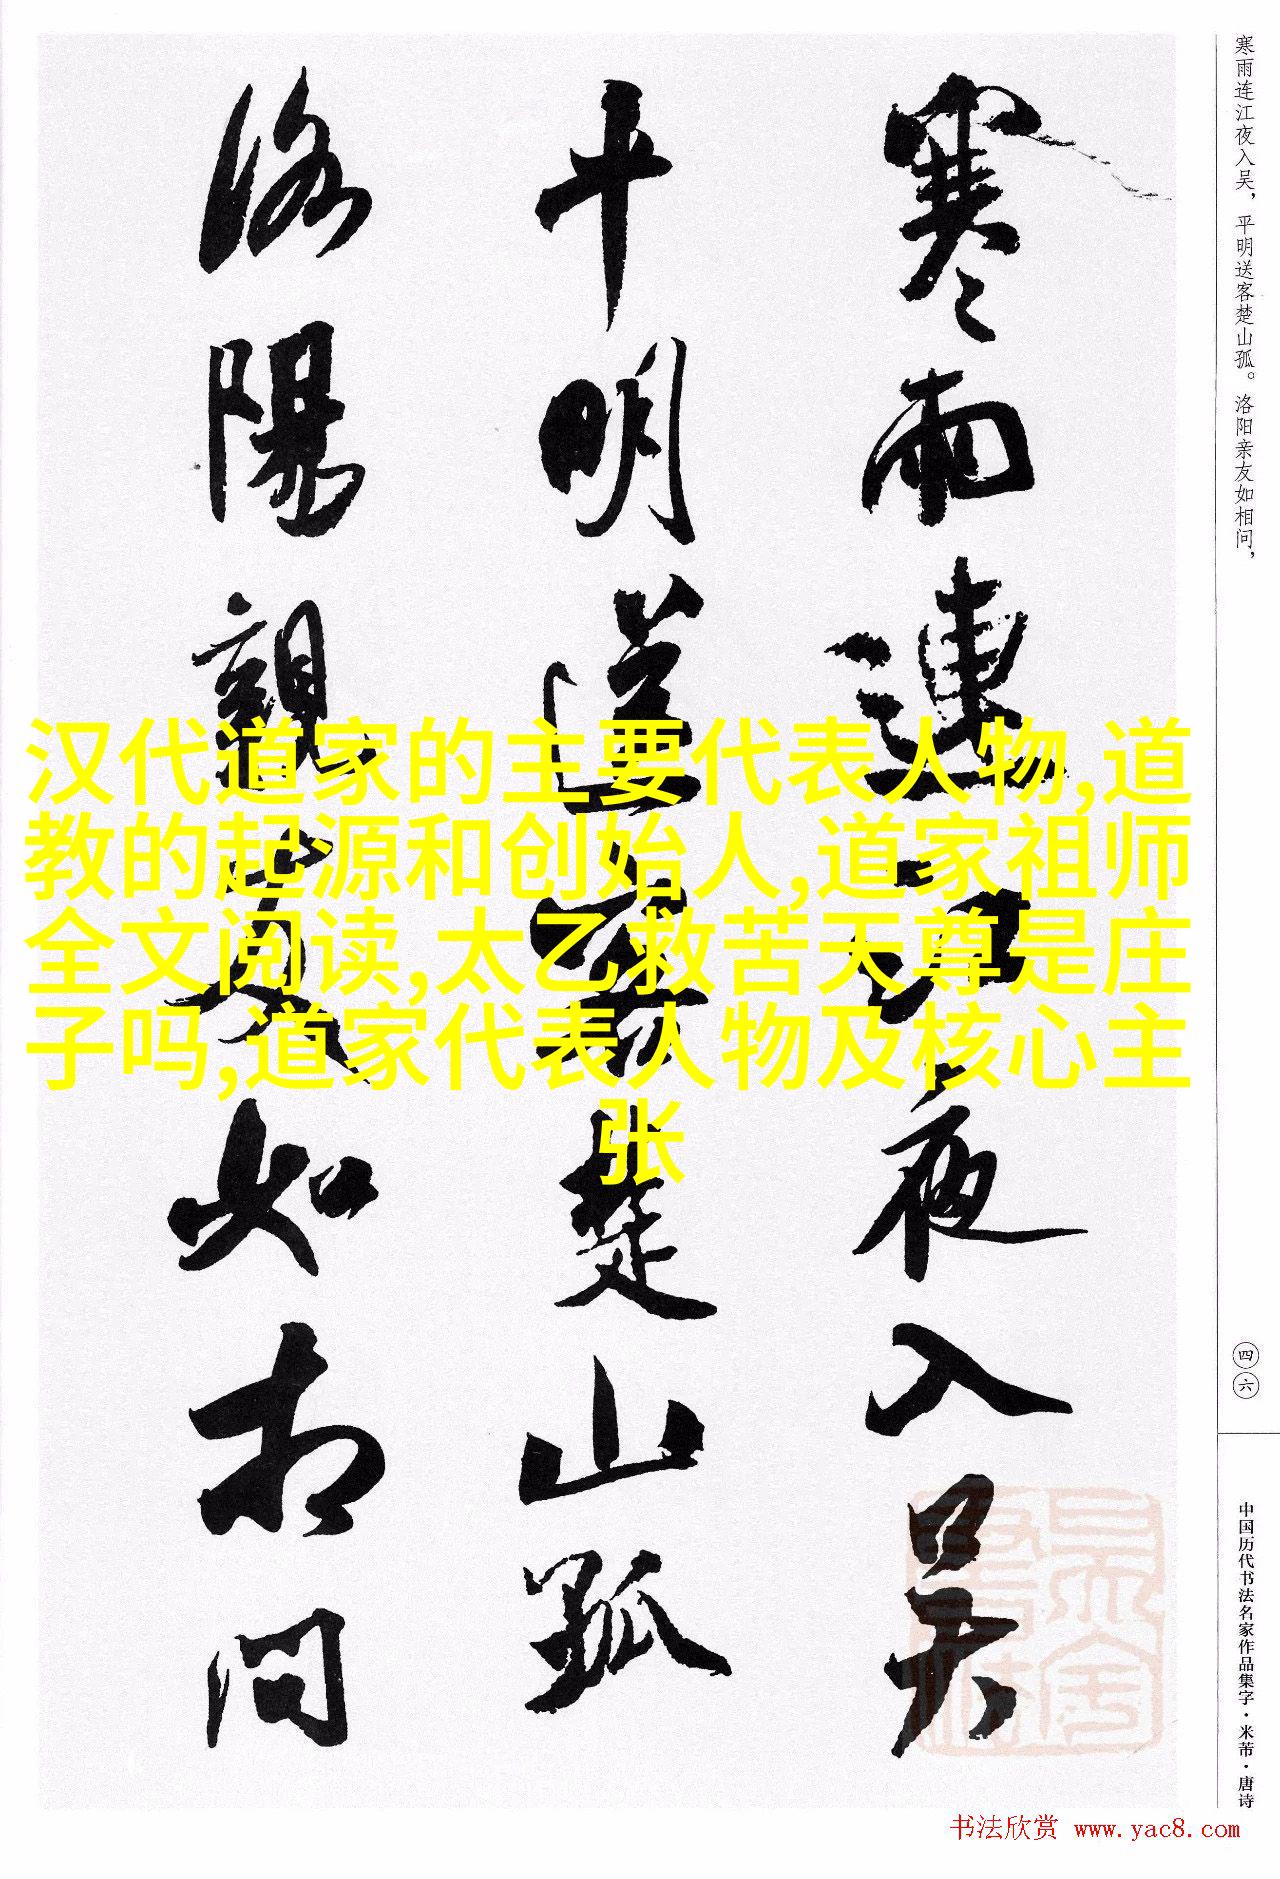 寒雨连江夜入吴，平明送客楚山孤。洛阳亲友如相问，
寒雨連江夜入吴
平明送客楚山孤
洛陽親友如相问
汉代道家的主要代表人物,道
教的起源和创始人,道家祖师
全文阅读,太乙救苦天尊是庄
子吗,道家代表人物及核心主
张
四六
中国历代书法名家作品集字·米芾·唐诗
书法欣赏 www.yac8.com